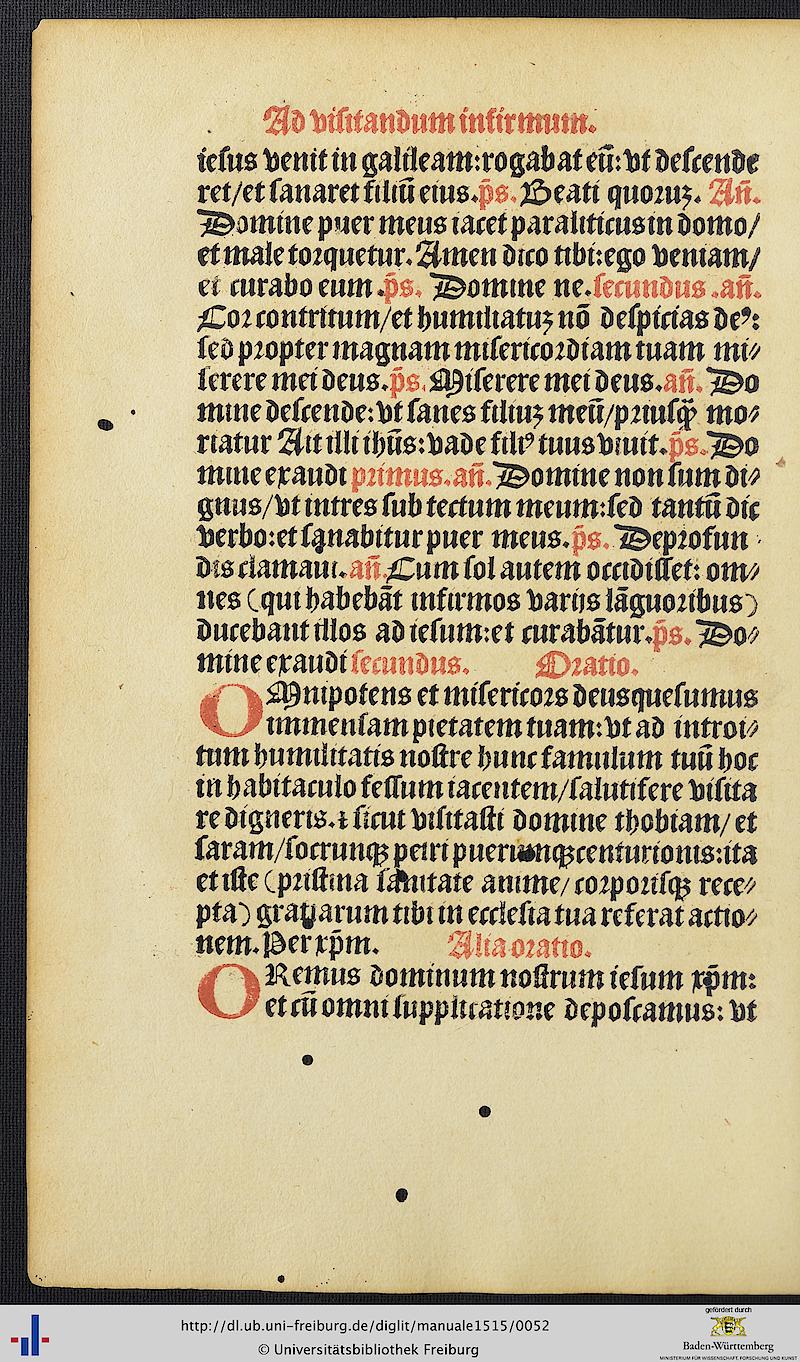 Ad visitandum infirmum.
iesus venit in galileam:rogabat eū:vt descende
ret/et sanaret filiū eius.p̄s. Beati quoruʒ. Añ.
Domine puer meus iacet paraliticus in domo/
et male torquetur. Amen dico tibi:ego veniam/
et curabo eum.p̄s. Domine ne.secundus.añ.
Cor contritum/et humiliatuʒ nō despicias deꝰ:
sed propter magnam misericordiam tuam mi⸗
serere mei deus.p̄s. Miserere mei deus.añ. Do
mine descende:vt sanes filiuʒ meū/priusꝙ̄ mo⸗
riatur Ait illi ihūs:vade filiꝰ tuus viuit.p̄s. Do
mine exaudi primus.añ. Domine non sum di⸗
gnus/vt intres sub tectum meum:sed tantū dic
verbo:et sanabitur puer meus.p̄s. Deprofun
dis clamaui.añ.Cum sol autem occidisset: om⸗
nes (qui habebāt infirmos varijs lāguoribus)
ducebant illos ad iesum:et curabātur.p̄s. Do⸗
mine exaudi secundus. Oratio.
OMnipotens et misericors deus quesumus
immensam pietatem tuam:vt ad introi⸗
tum humilitatis nostre hunc famulum tuū hoc
in habitaculo fessum iacentem/salutifere visita
re digneris.⁊ sicut visitasti domine thobiam/ et
saram/socrunqʒ petri puerumqʒ centurionis:ita
et iste (pristina sanitate anime/ corporisqʒ rece⸗
pta) gratiarum tibi in ecclesia tua referat actio⸗
nem. Per xp̄m. Alia oratio.
ORemus dominum nostrum iesum xp̄m:
et cū omni supplicatione deposcamus: vt
http://dl.ub.uni-freiburg.de/diglit/manuale1515/0052
© Universitätsbibliothek Freiburg
gefördert durch
Baden-Württemberg
MINISTERIUM FÜR WISSENSCHAFT, FORSCHUNG UND KUNST